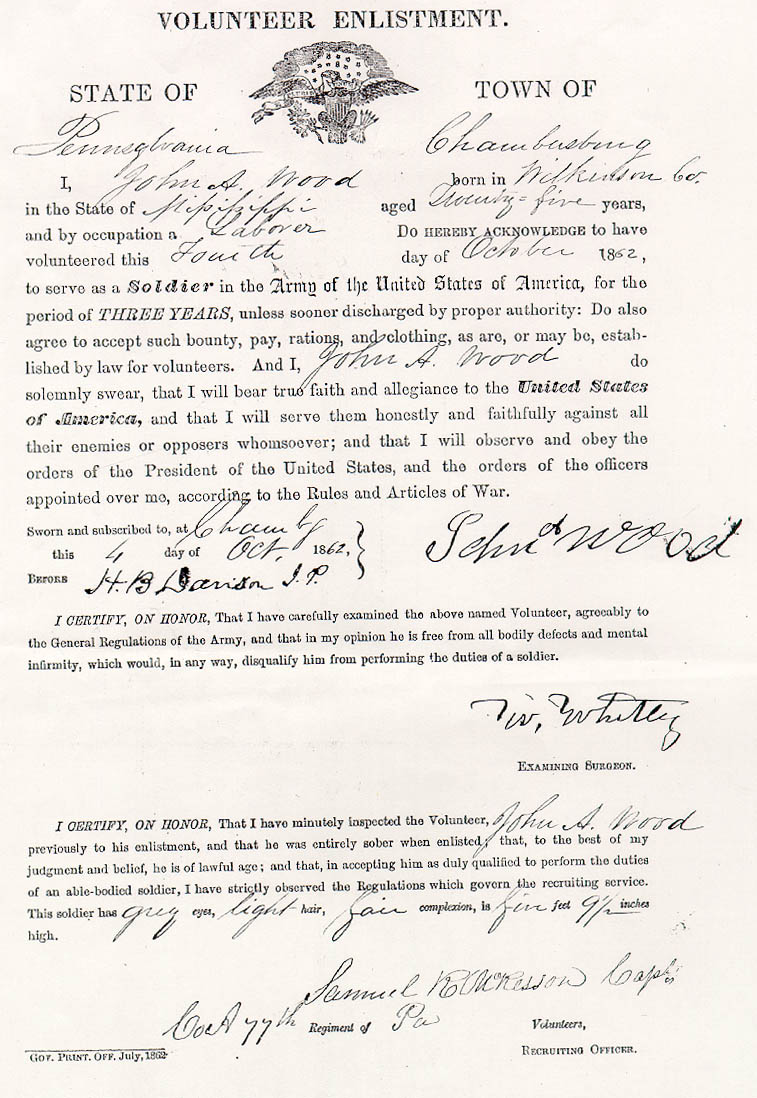 VOLUNTEER ENLISTMENT.
STATE OF TOWN OF
Pennsylvania Chambersburg
I, John A. Wood born in Wilkinson Co.
in the State of Missisippi aged Twenty=five years,
and by occupation a Laborer Do HEREBY ACKNOWLEDGE to have
volunteered this Fourth day of October 1862,
to serve as a Soldier in the Army of the United States of America, for the
period of THREE YEARS, unless sooner discharged by proper authority: Do also
agree to accept such bounty, pay, rations, and clothing, as are, or may be, estab-
lished by law for volunteers. And I, John A. Wood do
solemnly swear, that I will bear true faith and allegiance to the United States
of America, and that I will serve them honestly and faithfully against all
their enemies or opposers whomsoever; and that I will observe and obey the
orders of the President of the United States, and the orders of the officers
appointed over me, according to the Rules and Articles of War.
Sworn and subscribed to, at Chambg
this 4 day of Oct. 1862,
John A Wood
BEFORE H. B. Davison J. P.
I CERTIFY, ON HONOR, That I have carefully examined the above named Volunteer, agreeably to
the General Regulations of the Army, and that in my opinion he is free from all bodily defects and mental
infirmity, which would, in any way, disqualify him from performing the duties of a soldier.
EXAMINING SURGEON.
I CERTIFY, ON HONOR, That I have minutely inspected the Volunteer, John A. Wood
previously to his enlistment, and that he was entirely sober when enlisted; that, to the best of my
judgment and belief, he is of lawful age; and that, in accepting him as duly qualified to perform the duties
of an able-bodied soldier, I have strictly observed the Regulations which govern the recruiting service.
This soldier has grey eyes, light hair, fair complexion, is five feet 9½ inches
high.
Samuel R McKesson Capt
Co A 77th Regiment of Pa Volunteers,
RECRUITING OFFICER.
GOV. PRINT. OFF. July, 1862